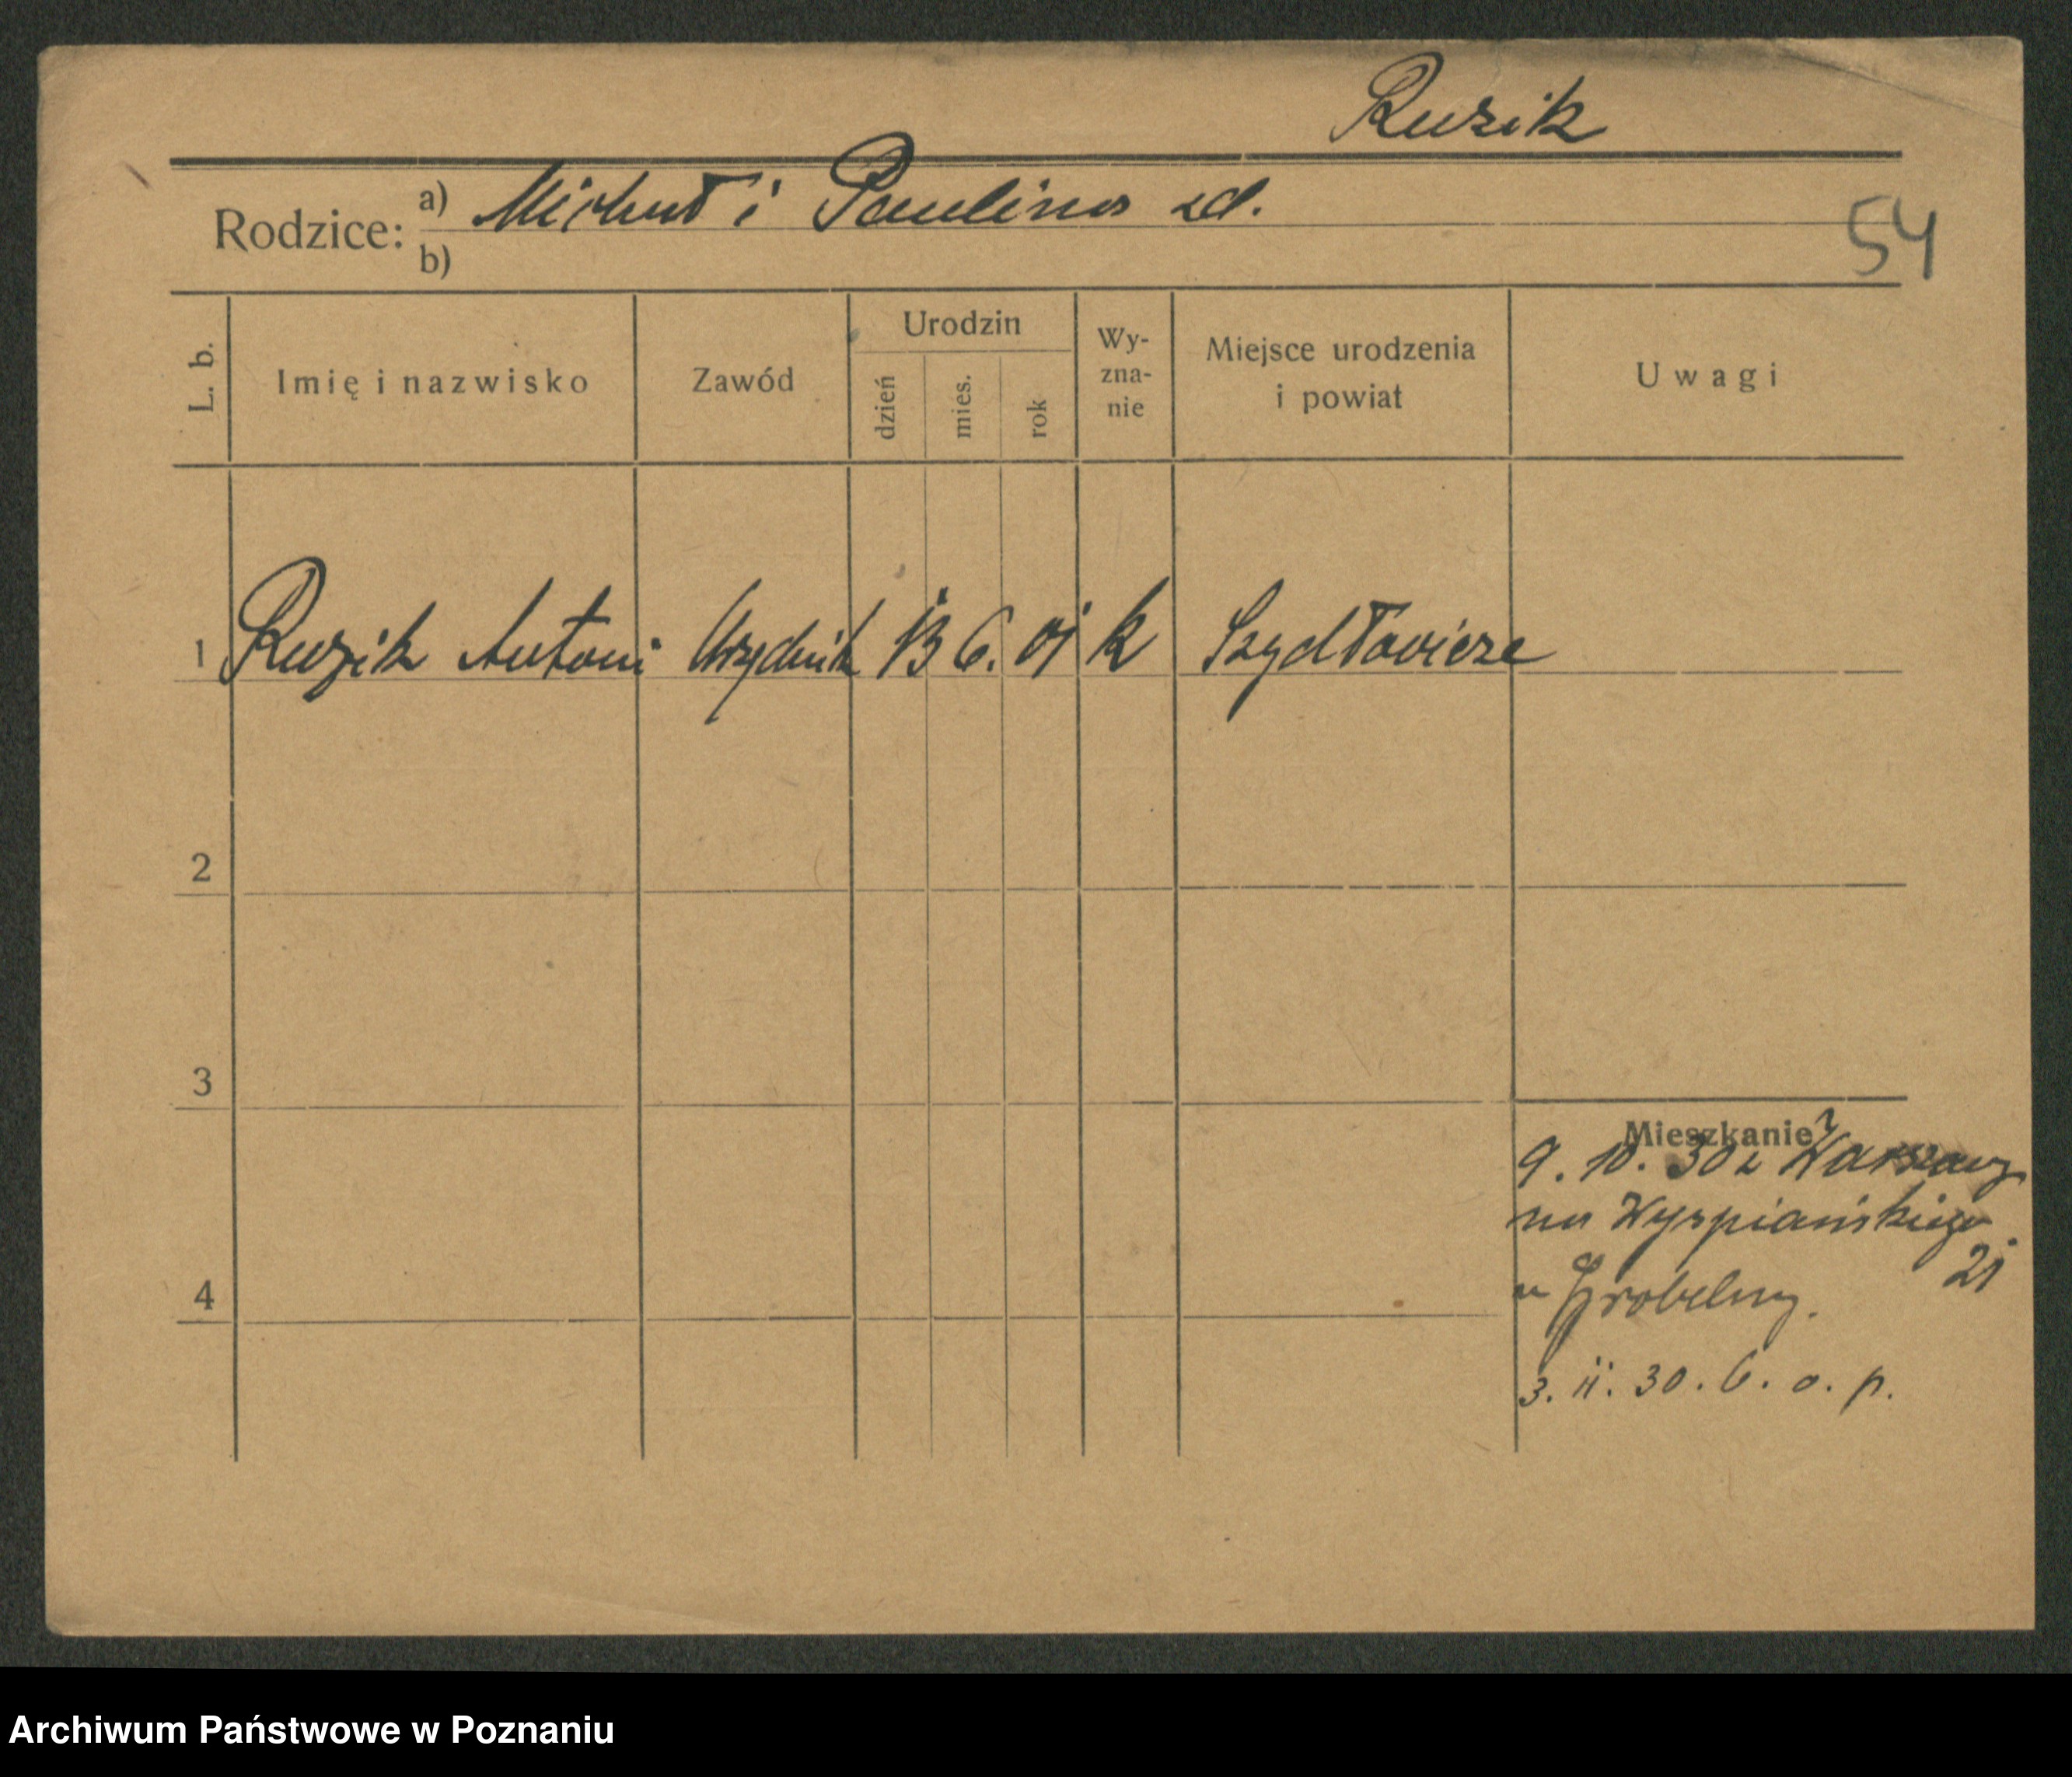 Ruzik
Rodzice: a) Michał i Paulina zd.
b)
54
L. b.
Imię i nazwisko
Zawód
Urodzin
dzień
mies.
rok
Wy-
zna-
nie
Miejsce urodzenia
i powiat
Uwagi
1 Ruzik Antoni Urzędnik 13 6. 01 k Szydłowiece
2
3
4
Mieszkanie
9. 10. 30 z Warszawy
na Wyspiańskiego
21
u Grobelny.
3. 11. 30. 6. o. p.
Archiwum Państwowe w Poznaniu